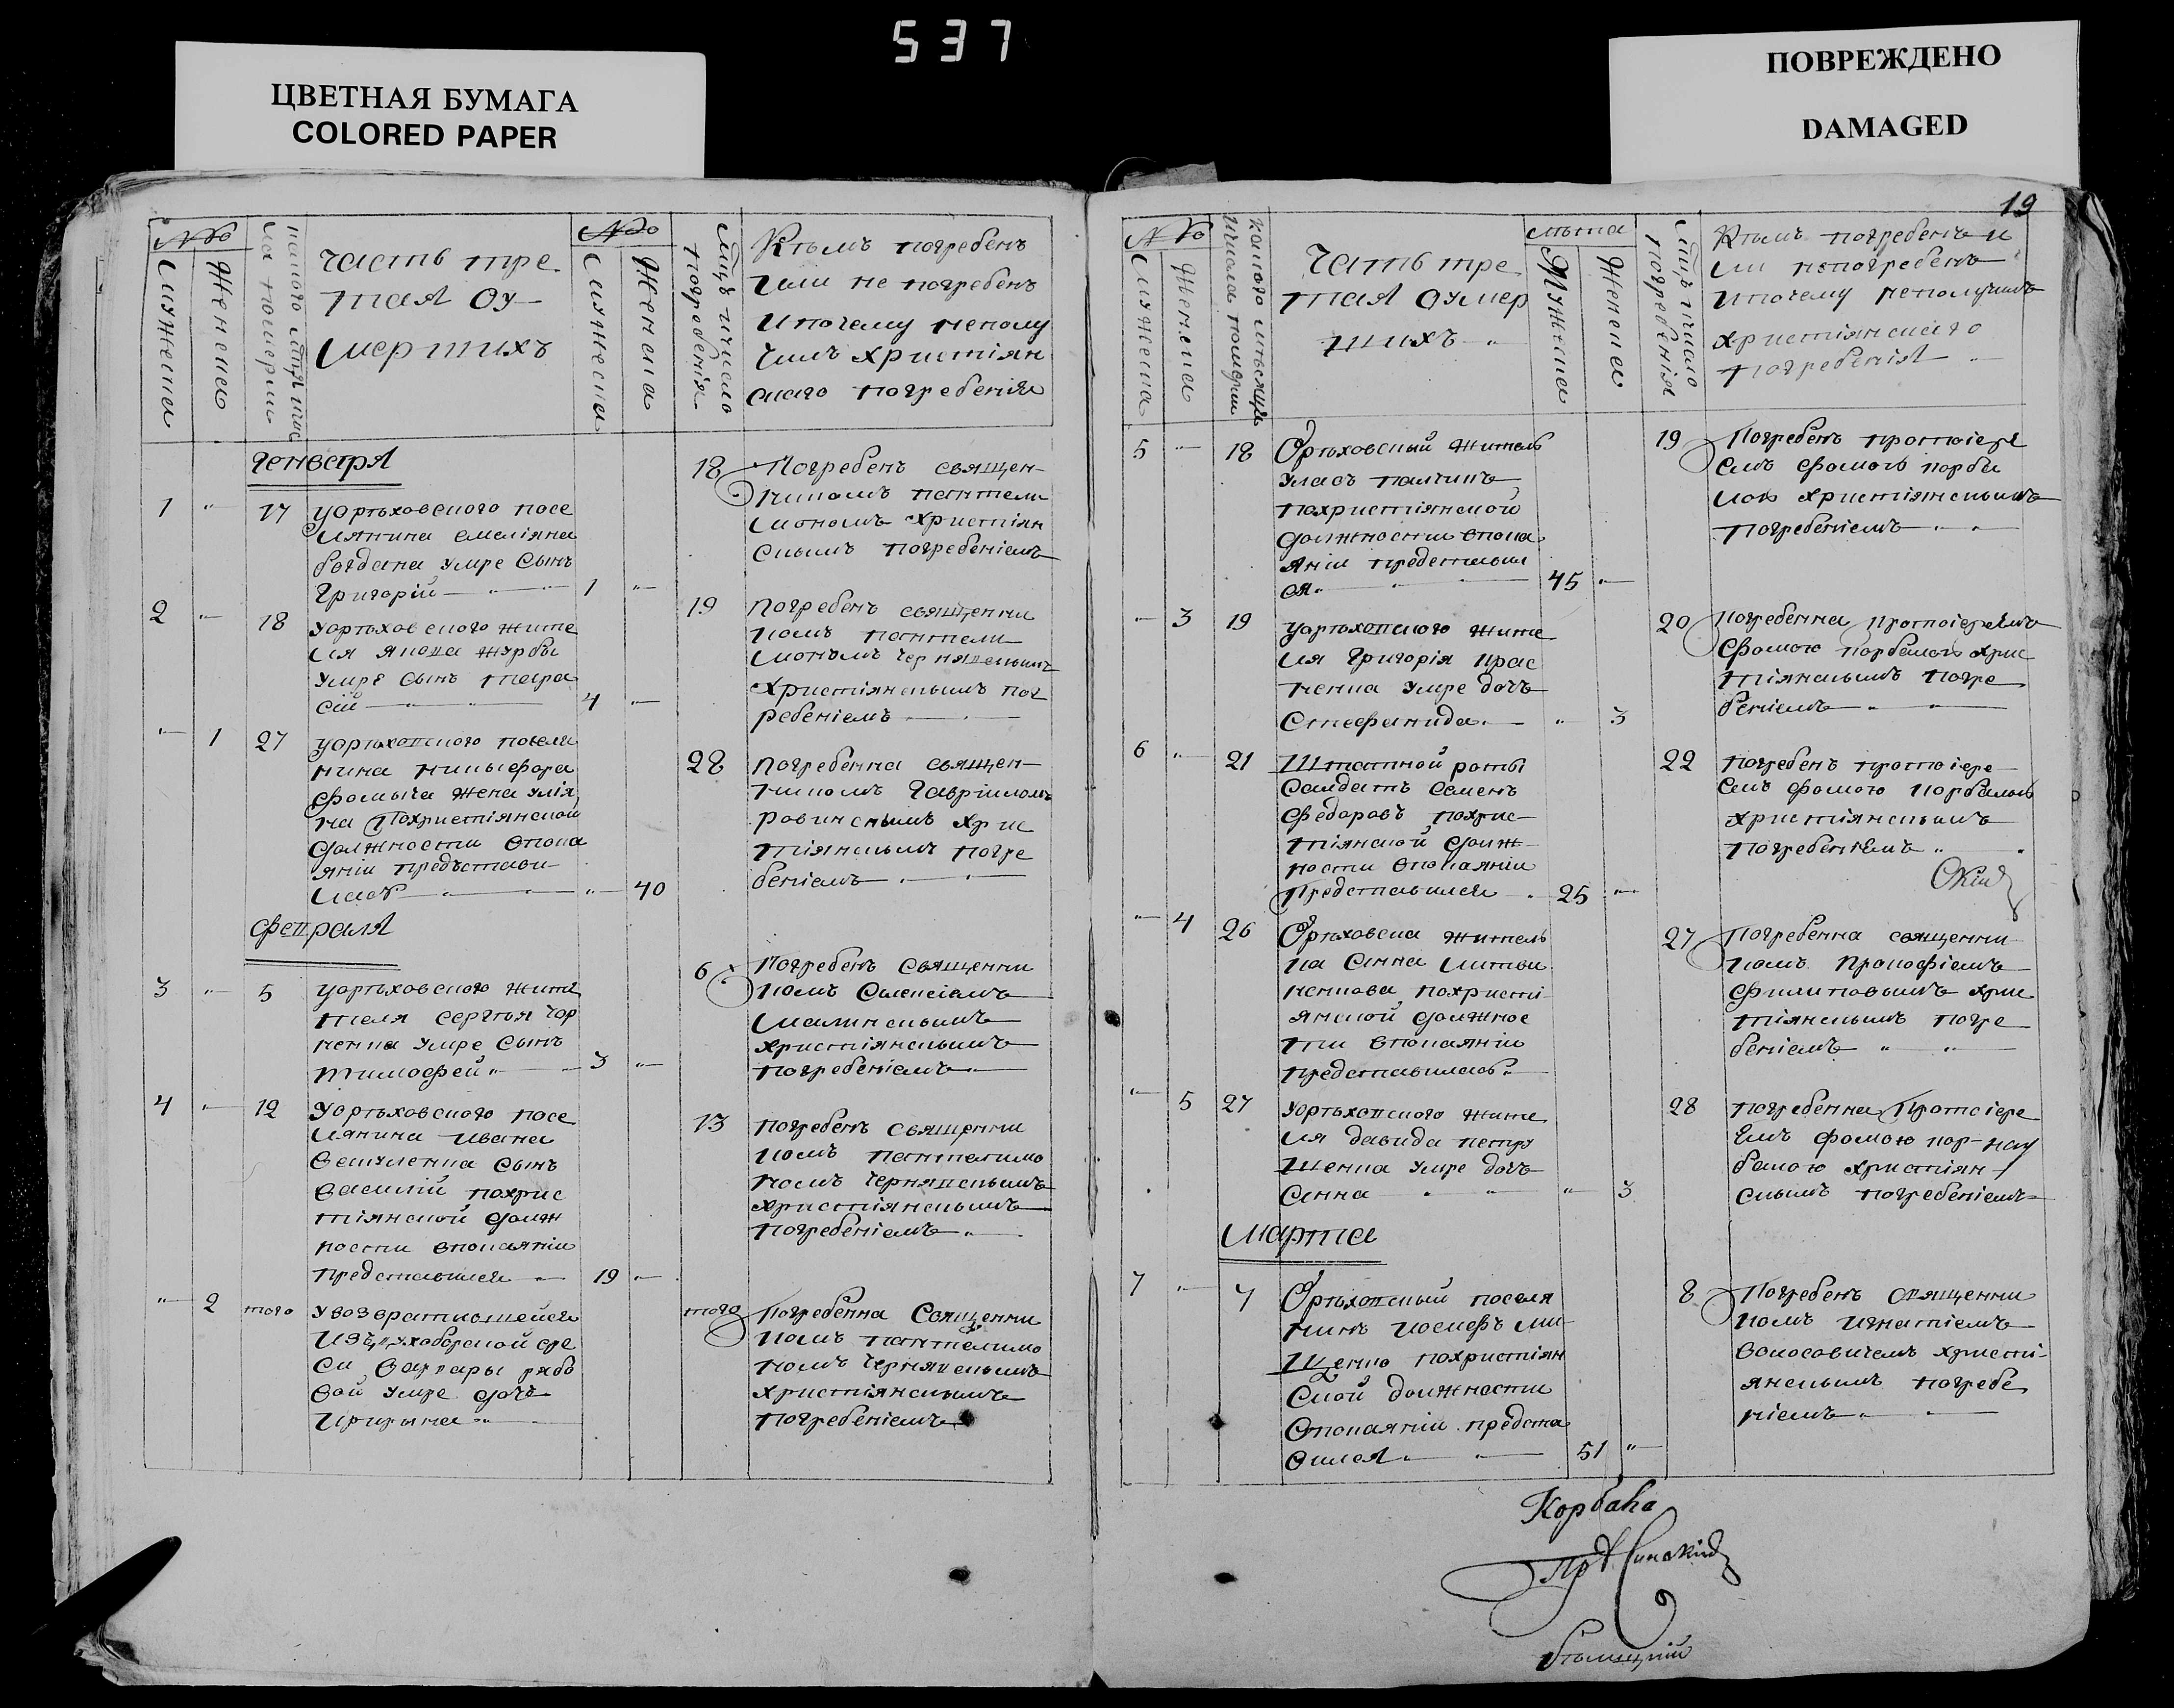 537
ЦВЕТНАЯ БУМАГА
COLORED PAPER
ПОВРЕЖДЕНО
DAMAGED
№№
Мужеска
Женска
часть тре
тая оу
мершихъ
Мужеска
Женска
погребенія
Кѣмъ погребенъ
или не погребенъ
и почему неполу
чилъ христіян
скаго погребенія
генваря
1 " 17
уорѣховского посе
лянина емеліяна
богдана умре сынъ
григорій 1 "
18
Погребенъ священ-
никомъ пантели
мономъ христіян
скимъ погребеніемъ
2 " 18
уорѣховского жите
ля якова журбы
умре сынъ тара
сій 4 "
19
погребенъ священни
комъ пантели
мономъ чернявскимъ
христіянскимъ пог
ребеніемъ
" 1 27
уорѣховского поселя
нина никифора
фомича жена улія
на похристіянской
должности впока
яніи предъстави
лась " 40
28
погребенна священ-
никомъ гавріиломъ
ровинскимъ хрис
тіянскимъ погре
беніемъ
февраля
3 " 5
уорѣховского жите
теля сергѣя чор
ненка умре сынъ
тимофей 3 "
6
Погребенъ священни
комъ Алексіемъ
малинскимъ
христіянскимъ
погребеніемъ
4 " 12
уорѣховского посе
лянина ивана
сынъ
василій похрис
тіянской долж
ности впокаяніи
представился 19 "
13
погребенъ священни
комъ пантелимо
номъ чернявскимъ
христіянскимъ
погребеніемъ
" 2 того
увозвратившейся
изъ духоборской ере
си варвары рябо
вой умре дочь
ирирына
того
погребенна священни
комъ пантелимо
номъ чернявскимъ
христіянскимъ
погребеніемъ
19
№№
Мужеска
Женска
какого мѣсяца
и числа померли
часть тре
тая оумер
шихъ
лѣта
Мужеска
Женска
погребенія
Кѣмъ погребенъ и
ли непогребенъ
и почему неполучилъ
христіянскаго
погребенія
5 " 18
Орѣховский житель
улась палчинъ
похристіянской
должности впока
яніи представил
ся 45 "
19
Погребенъ протоіере
емъ фомою корба
кою христіянскимъ
погребеніемъ
" 3 19
уорѣховского жите
ля григорія крас
ненка умре дочъ
Стефанида " 3
20
погребенна протоіереемъ
фомою корбакою хрис
тіянскимъ погре
беніемъ
6 " 21
Штатной роты
Салдатъ Семенъ
Федоровъ похрис-
тіянской долж-
ности впокаяніи
представился 25 "
22
погребенъ протоіере
емъ фомою корбакою
христіянскимъ
погребеніемъ
" 4 26
Орѣховска житель
ка Анна литви
ненкова похристі
янской должнос
ти впокаяніи
представилась
27
Погребенна священни
комъ Прокофіемъ
филиповымъ хрис
тіянскимъ погре
беніемъ
" 5 27
уорѣховского жите
ля давида петру
шенка умре дочъ
Анна " 3
28
погребенна Протоіере
емъ фомою кор-
бакою христіян
скимъ погребеніемъ
марта
7 " 7
Орѣховский поселя
нинъ иосифъ ми
щенко похристіян
ской должности
впокаяніи предста
вился 51 "
8
Погребенъ священни
комъ игнатіемъ
волосовичемъ христі-
янскимъ погребе
ніемъ
Корбака